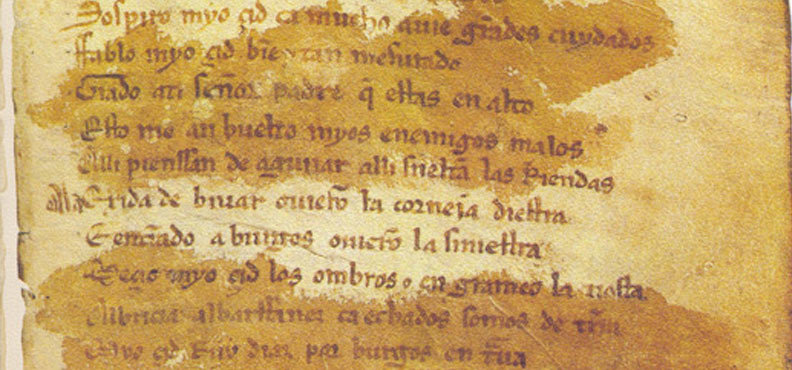 Sospiro myo çid ca mucho auie grãdes cuydados
ffablo myo çid bien τ tan mesurado
Grado ati señor padre q̃ estas en alto
Esto me an buelto myos enemigos malos
Alli pienssan de aguiiar alli sueltã las Riendas
Ala Exida de biuar ouierõ la corneia diestra
E entrãdo a burgos ouierõ la siniestra
Meçio myo çid los ombros o en grameo la tiesta
Albricia albarffanez ca echados somos de trr̃a
Myo çid Ruy diaz por burgos en trr̃aua